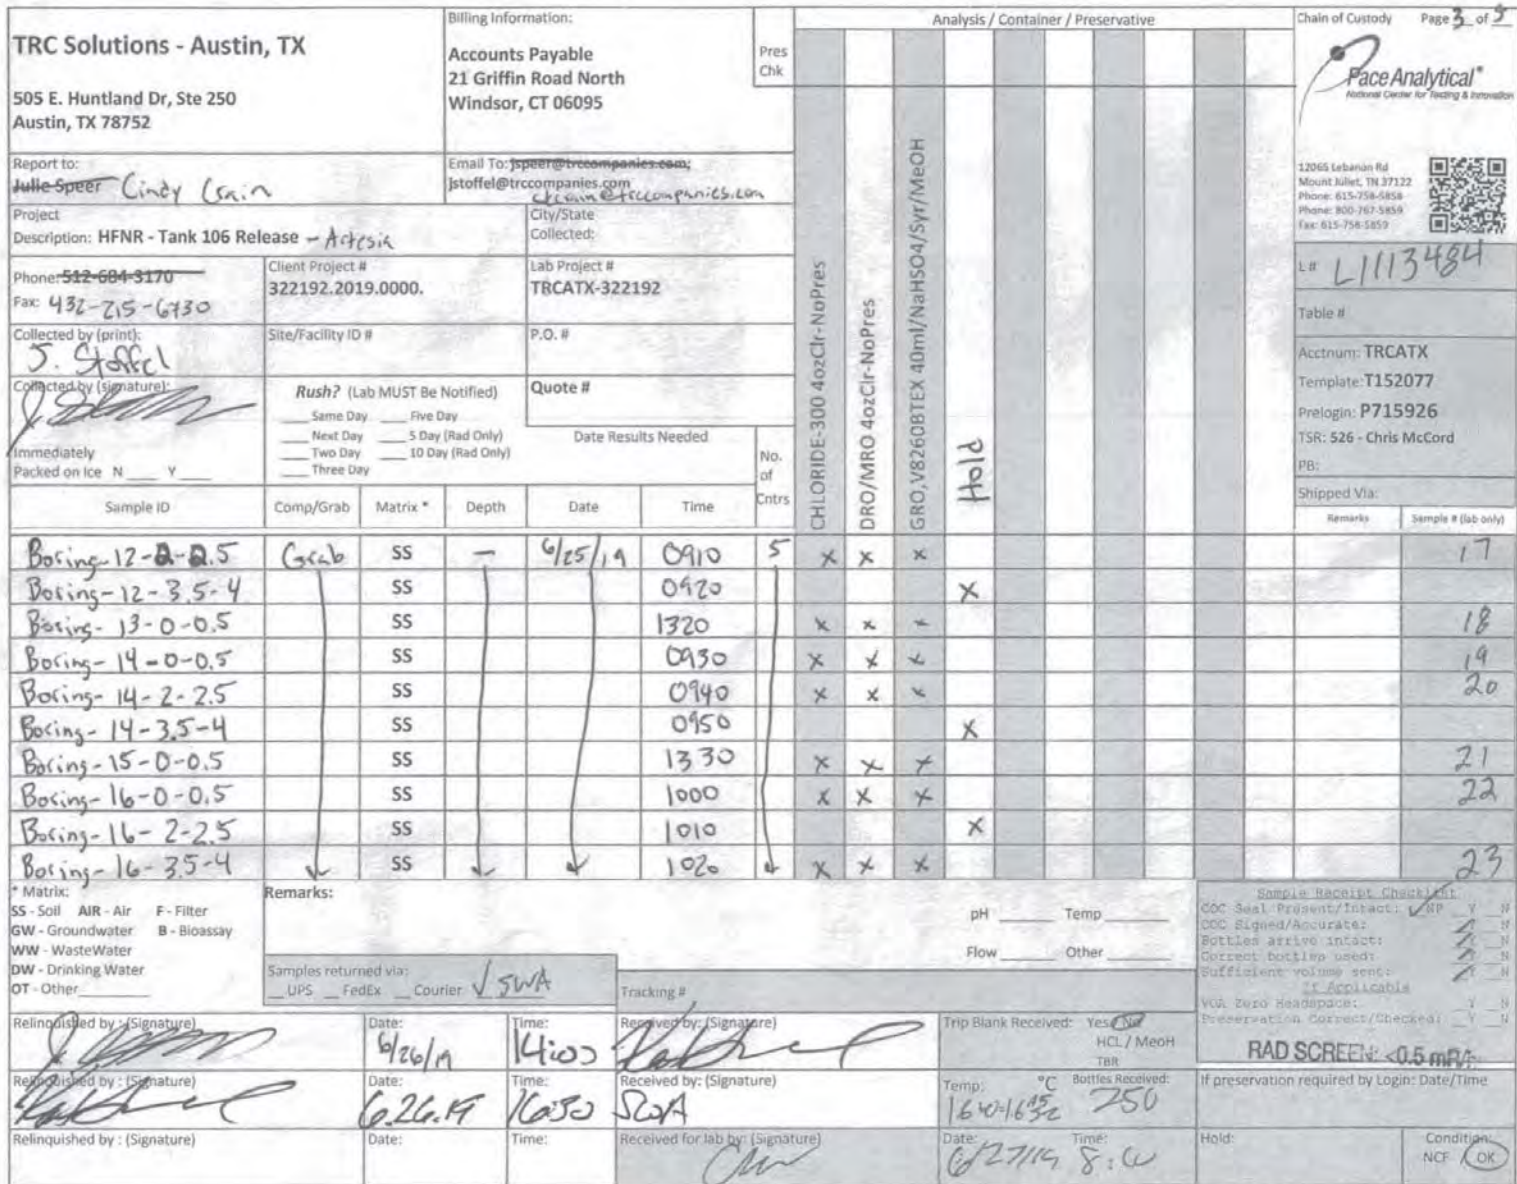 TRC Solutions - Austin, TX
505 E. Huntland Dr, Ste 250
Austin, TX 78752
Billing Information:
Accounts Payable
21 Griffin Road North
Windsor, CT 06095
Pres
Chk
Analysis / Container / Preservative
Chain of Custody Page 3 of 5
Pace Analytical®
National Center for Testing & Innovation
12065 Lebanon Rd
Mount Juliet, TN 37122
Phone: 615-758-5858
Phone: 800-767-5859
Fax: 615-758-5859
Report to:
Julie Speer Cindy Crain
Email To: jspeer@trccompanies.com;
jstoffel@trccompanies.com
ccrain@trccompanies.com
Project
Description: HFNR - Tank 106 Release - Artesia
City/State
Collected:
Phone: 512-684-3170
Fax: 432-215-6730
Client Project #
322192.2019.0000.
Lab Project #
TRCATX-322192
Collected by (print):
J. Stoffel
Site/Facility ID #
P.O. #
Collected by (signature):
Rush? (Lab MUST Be Notified)
Same Day Five Day
Next Day 5 Day (Rad Only)
Two Day 10 Day (Rad Only)
Three Day
Quote #
Date Results Needed
Immediately
Packed on Ice N Y
No.
of
Cntrs
CHLORIDE-300 4ozClr-NoPres
DRO/MRO 4ozClr-NoPres
GRO,V8260BTEX 40ml/NaHSO4/Syr/MeOH
Hold
L# L1113484
Table #
Acctnum: TRCATX
Template: T152077
Prelogin: P715926
TSR: 526 - Chris McCord
PB:
Shipped Via:
Remarks Sample # (lab only)
Sample ID Comp/Grab Matrix * Depth Date Time
Boring-12-2-2.5 Grab SS - 6/25/19 0910 5 x x x 17
Boring-12-3.5-4 SS 0920 x
Boring-13-0-0.5 SS 1320 x x x 18
Boring-14-0-0.5 SS 0930 x x x 19
Boring-14-2-2.5 SS 0940 x x x 20
Boring-14-3.5-4 SS 0950 x
Boring-15-0-0.5 SS 1330 x x x 21
Boring-16-0-0.5 SS 1000 x x x 22
Boring-16-2-2.5 SS 1010 x
Boring-16-3.5-4 SS 1020 x x x 23
* Matrix:
SS - Soil AIR - Air F - Filter
GW - Groundwater B - Bioassay
WW - WasteWater
DW - Drinking Water
OT - Other
Remarks:
pH Temp
Flow Other
Samples returned via:
UPS FedEx Courier ✓ SWA
Tracking #
Sample Receipt Checklist
COC Seal Present/Intact: ✓NP Y N
COC Signed/Accurate: N
Bottles arrive intact: N
Correct bottles used: N
Sufficient volume sent: N
If Applicable
VOA Zero Headspace: Y N
Preservation Correct/Checked: Y N
RAD SCREEN: <0.5 mR/hr
Relinquished by : (Signature)
Date:
6/26/19
Time:
14:00
Received by: (Signature)
Trip Blank Received: Yes / No
HCL / MeoH
TBR
Relinquished by : (Signature)
Date:
6.26.19
Time:
1630
Received by: (Signature)
SWA
Temp: °C Bottles Received:
250
If preservation required by Login: Date/Time
Relinquished by : (Signature)
Date:
Time:
Received for lab by: (Signature)
Date: Time:
6/27/19
Hold:
Condition:
NCF / OK